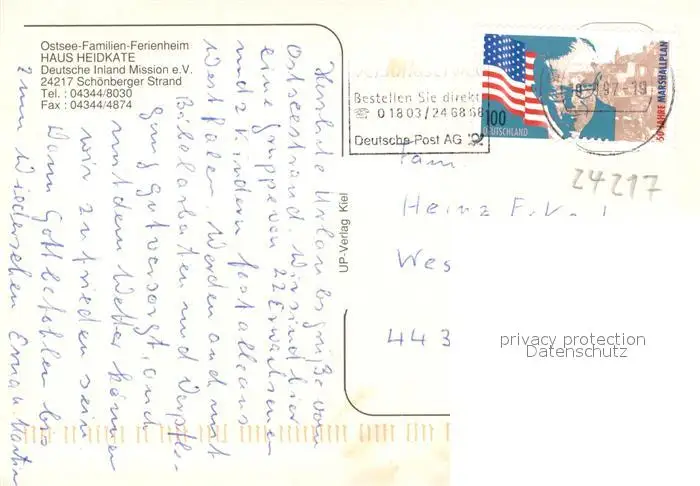 Ostsee-Familien-Ferienheim
HAUS HEIDKATE
Deutsche Inland Mission e.V.
24217 Schönberger Strand
Tel. : 04344/8030
Fax : 04344/4874
Herzliche Urlaubsgrüße vom
Ostseestrand. Wir sind hier
eine Gruppe von 22 Erwachsenen
und 2 Kindern fast alle aus
Westfalen. Werden auch mit
Bibelarbeiten und Verpfle-
gung gut versorgt, auch
mit dem Wetter können
wir zufrieden sein
Dann Gott befohlen bis
zum Wiedersehen Erna u. Martin
UP-Verlag Kiel
Bestellen Sie direkt
☎ 01803/246868
Deutsche Post AG
100
DEUTSCHLAND
50 JAHRE MARSHALLPLAN
24217
Fam.
Heinz
Wes
443
privacy protection
Datenschutz